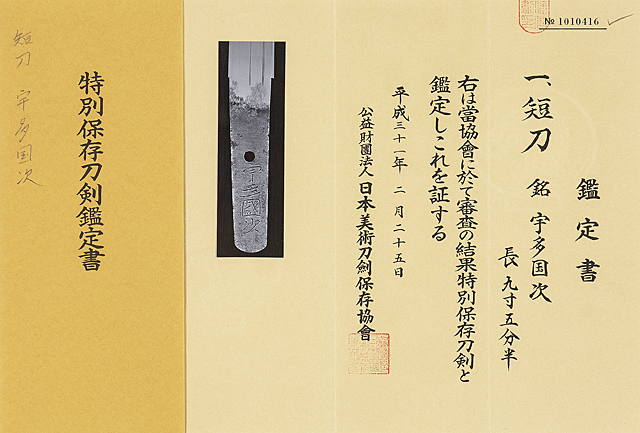 № 1010416
鑑定書
一、短刀 銘 宇多国次
長 九寸五分半
右は當協會に於て審査の結果特別保存刀剣と
鑑定しこれを証する
平成三十一年 二月二十五日
公益財團法人 日本美術刀劍保存協會
宇多國次
特別保存刀剣鑑定書
短刀 宇多国次